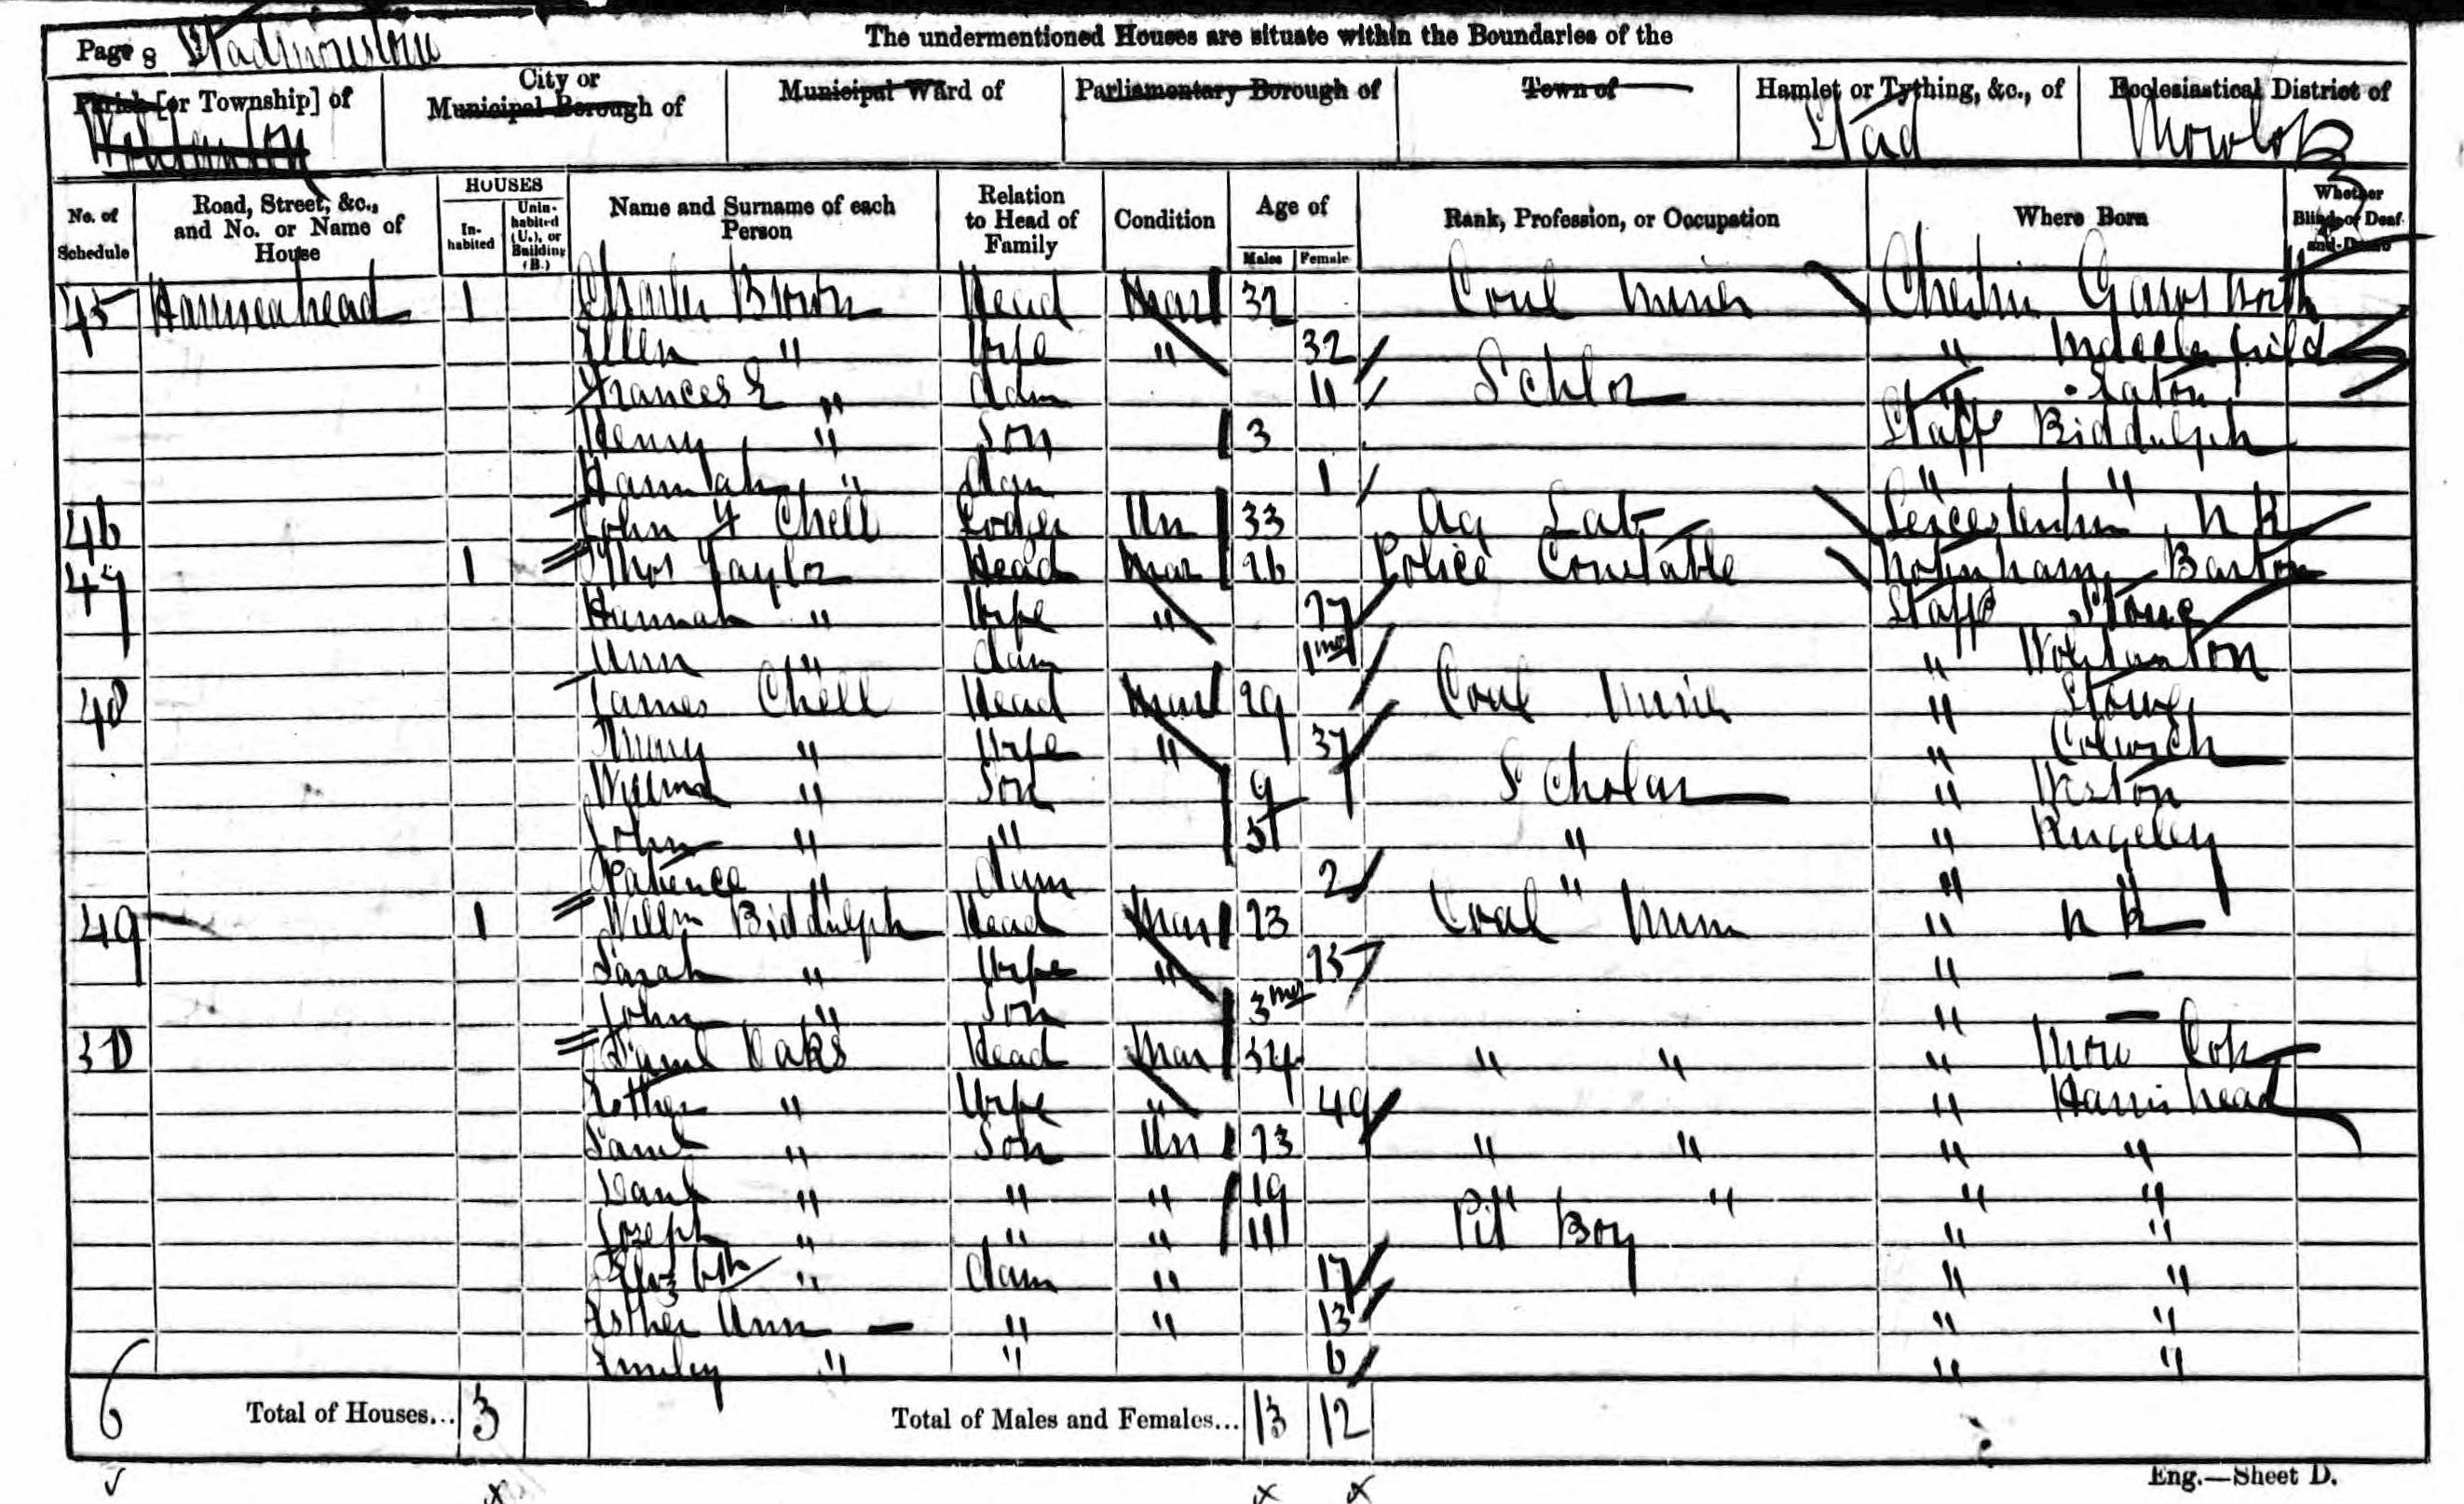 Page 8 Stadmorslow
The undermentioned Houses are situate within the Boundaries of the
Parish [or Township] of
City or Municipal Borough of
Municipal Ward of
Parliamentary Borough of
Town of
Hamlet or Tything, &c., of
Ecclesiastical District of
Wolstanton
Stad
Mow Cop
No. of Schedule
Road, Street, &c., and No. or Name of House
HOUSES
In-habited
Unin-habited (U.), or Building (B.)
Name and Surname of each Person
Relation to Head of Family
Condition
Age of
Males
Female
Rank, Profession, or Occupation
Where Born
Whether Blind, or Deaf-and-Dumb
45 Harriseahead 1 Charles Brown Head Mar 32 Coal Miner Cheshire Gawsworth
Ellen " Wife " 32 "
Frances E " 11 Schlor " Eaton
Henry " Son 3 Staff Biddulph
Hannah " Dau 1 " "
46 John Chell Lodger Un 33 Ag Lab Leicestershire N K
47 1 Thos Taylor Head Mar 26 Police Constable Barton
Hannah " Wife " 27 Staffs Stone
Ann " Daur 1mo " Wolstanton
48 James Chell Head Mar 29 Coal Miner " Stowe
" Wife " 37 " Colwich
William " Son 9 Scholar " Weston
John " " 5 " " Rugeley
Patience " Daur 2 " " "
49 1 Willm Biddulph Head Mar 23 Coal Miner " N K
Sarah " Wife " 23 " —
John " Son 3mos " —
50 Saml Oaks Head Mar 54 " " " Mow Cop
Esther " Wife " 49 " Harrisehead
Saml " Son Un 23 " " " "
" " " 19 " " " "
Joseph " " " 11 Pit Boy " "
Elizbth " Daur " 17 " "
Esther Ann — " " 13 " "
Emiley " " 6 " "
6 Total of Houses... 3 Total of Males and Females... 13 12
Eng.—Sheet D.